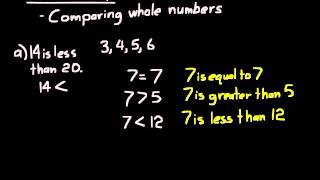 - Comparing whole numbers
a) 14 is less
than 20.
14 <
3, 4, 5, 6
7 = 7 7 is equal to 7
7 > 5 7 is greater than 5
7 < 12 7 is less than 12